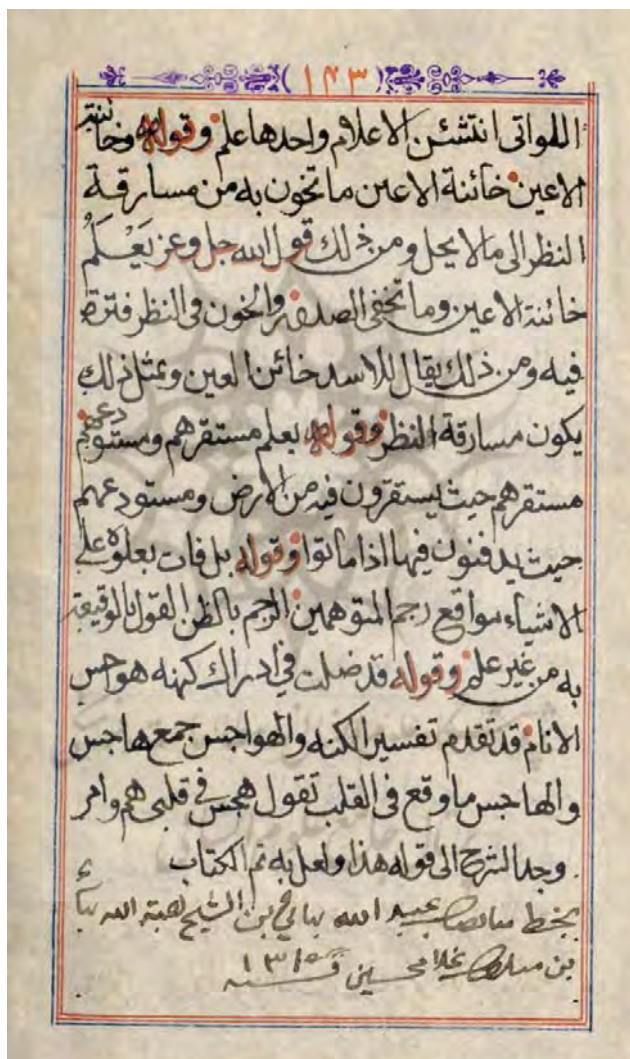 (١٤٣)
اللواتى انتشئن الاعلام واحدها علم وقوله وخائنة
الاعين خائنة الاعين ما تخون به من مسارقة
النظر الى ما لا يحل ومن ذلك قول الله جل وعز يَعْلَمُ
خائنة الاعين وما تخفى الصدور والخون فى النظر فترة
فيه ومن ذلك يقال للاسد خائن العين وبمثل ذلك
يكون مسارقة النظر وقوله يعلم مستقرهم ومستودعهم
مستقرهم حيث يستقرون فيه من الارض ومستودعهم
حيث يدفنون فيها اذا ماتوا وقوله بل فات بعلوه على
الاشياء مواقع رجم المتوهمين الرجم بالظن القول بالوقيعة
به من غير علم وقوله قد ضلت فى ادراك كنهه هواجس
الانام قد تقدم تفسير الكنه والهواجس جمع هاجس
والهاجس ما وقع فى القلب تقول هجس فى قلبى هم وامر
وجد الشرح الى قوله هذا ولعل به تم الكتاب
بخط عبد الله بن الشيخ هبة الله
بن غلامحسين ١٣١٥